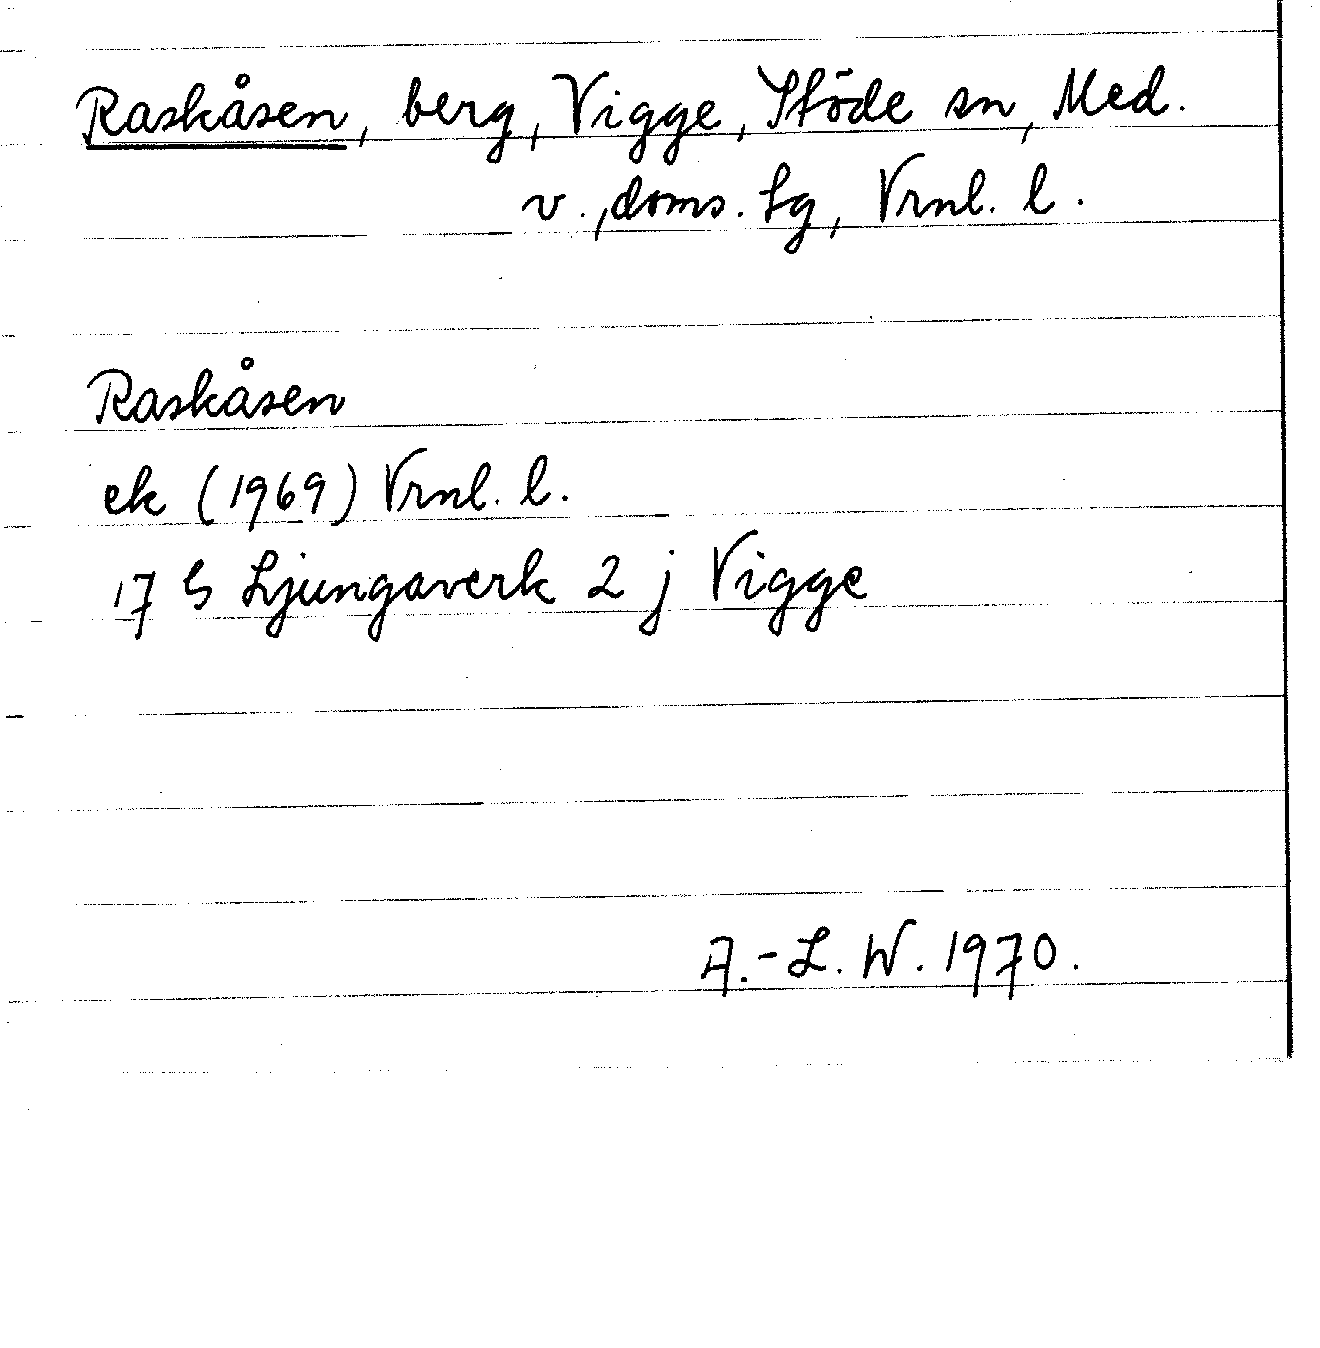 Raskåsen, berg, Vigge, Stöde sn, Med.
v., doms. Lg, Vrnl. l.
Raskåsen
ek (1969) Vrnl. l.
17 G Ljungaverk 2 j Vigge
A.-L. W. 1970.